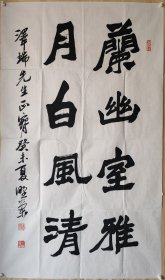 蘭幽室雅
月白風清
澤端先生正寳癸未夏